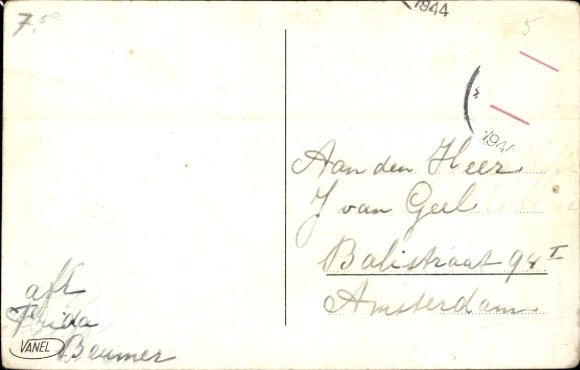 7,50
5
1944
1944
Aan den Heer
J van Geel
Balistraat 98 I
Amsterdam
afz
Frida
Beumer
VANEL